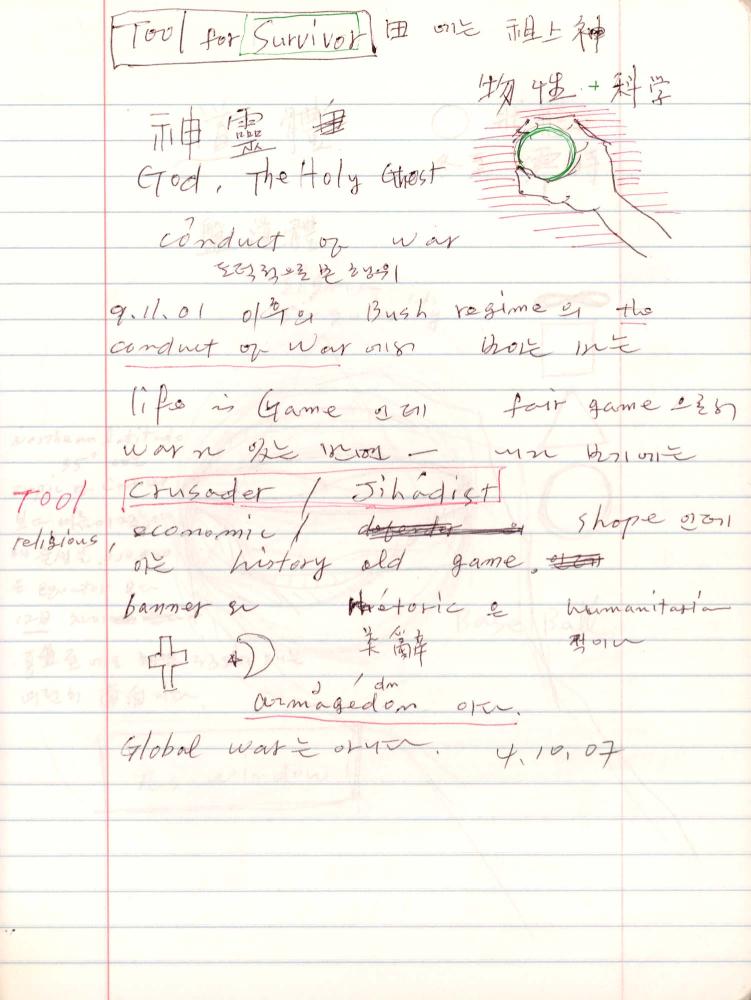 Tool for Survivor 田 에는 祖上神
物性 + 科学
神靈
God, The Holy Ghost
conduct of war
도덕적으로 본 행위
9.11.01 이후의 Bush regime의 the
conduct of war에서 보이는
life is Game 인데 fair game 으로서
war가 있는 반면 — 내가 보기에는
TOOL Crusader / Jihādist
religious, economic / shape 인데
이는 history old game.
banner와 rhetoric은 humanitaria
美辭 적이나
dn
armagedon 이다.
Global war는 아니다. 4.10.07